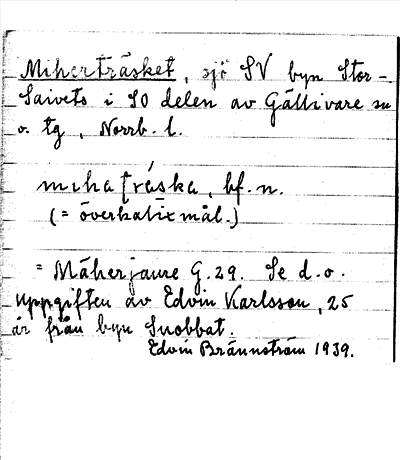 Miherträsket, sjö SV byn Stor-
Saivets i SO delen av Gällivare sn
o. tg, Norrb. l.
mihatráska, bf. n.
(= överkalixmål.)
= Māherjaure G. 29. Se d. o.
Uppgiften av Edvin Karlsson, 25
år från byn Snobbat.
Edvin Brännström 1939.